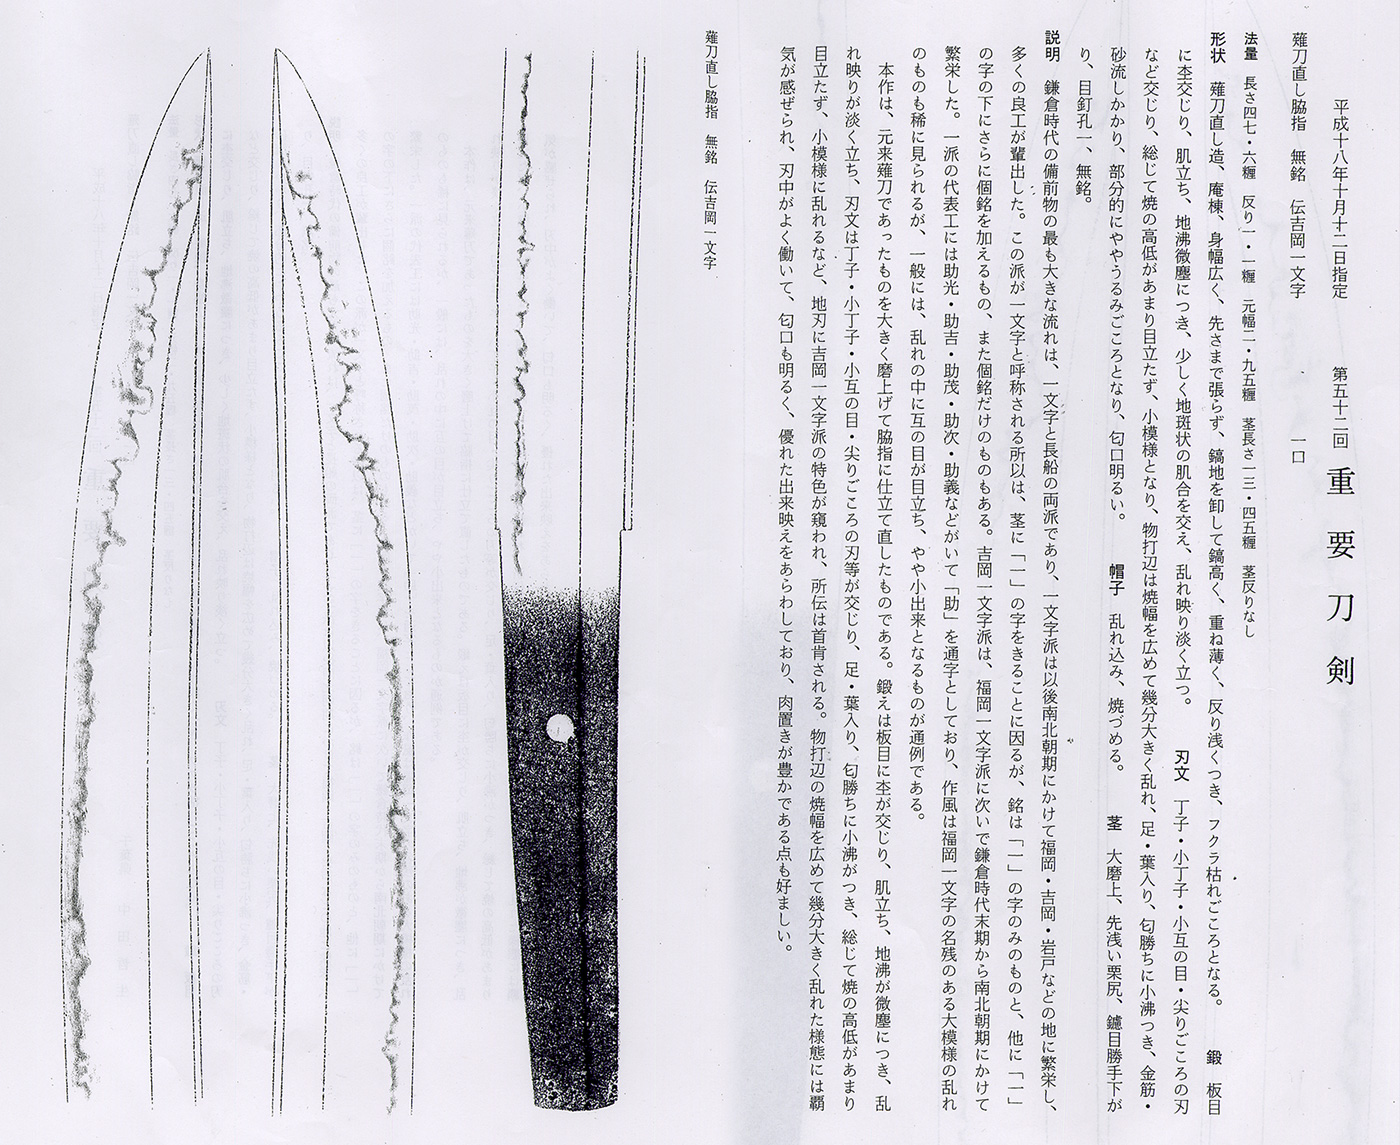 平成十八年十月十二日指定　第五十二回　重要刀剣
薙刀直し脇指　無銘　伝吉岡一文字　一口
法量　長さ四七・六糎　反り一・一糎　元幅二・九五糎　茎長さ一三・四五糎　茎反りなし
形状　薙刀直し造、庵棟、身幅広く、先さまで張らず、鎬地を卸して鎬高く、重ね薄く、反り浅くつき、フクラ枯れごころとなる。　鍛　板目
に杢交じり、肌立ち、地沸微塵につき、少しく地斑状の肌合を交え、乱れ映り淡く立つ。　刃文　丁子・小丁子・小互の目・尖りごころの刃
など交じり、総じて焼の高低があまり目立たず、小模様となり、物打辺は焼幅を広めて幾分大きく乱れ、足・葉入り、匂勝ちに小沸つき、金筋・
砂流しかかり、部分的にややうるみごころとなり、匂口明るい。　帽子　乱れ込み、焼づめる。　茎　大磨上、先浅い栗尻、鑢目勝手下が
り、目釘孔一、無銘。
説明　鎌倉時代の備前物の最も大きな流れは、一文字と長船の両派であり、一文字派は以後南北朝期にかけて福岡・吉岡・岩戸などの地に繁栄し、
多くの良工が輩出した。この派が一文字と呼称される所以は、茎に「一」の字をきることに因るが、銘は「一」の字のみのものと、他に「一」
の字の下にさらに個銘を加えるもの、また個銘だけのものもある。吉岡一文字派は、福岡一文字派に次いで鎌倉時代末期から南北朝期にかけて
繁栄した。一派の代表工には助光・助吉・助茂・助次・助義などがいて「助」を通字としており、作風は福岡一文字の名残のある大模様の乱れ
のものも稀に見られるが、一般には、乱れの中に互の目が目立ち、やや小出来となるものが通例である。
本作は、元来薙刀であったものを大きく磨上げて脇指に仕立て直したものである。鍛えは板目に杢が交じり、肌立ち、地沸が微塵につき、乱
れ映りが淡く立ち、刃文は丁子・小丁子・小互の目・尖りごころの刃等が交じり、足・葉入り、匂勝ちに小沸がつき、総じて焼の高低があまり
目立たず、小模様に乱れるなど、地刃に吉岡一文字派の特色が窺われ、所伝は首肯される。物打辺の焼幅を広めて幾分大きく乱れた様態には覇
気が感ぜられ、刃中がよく働いて、匂口も明るく、優れた出来映えをあらわしており、肉置きが豊かである点も好ましい。
薙刀直し脇指　無銘　伝吉岡一文字